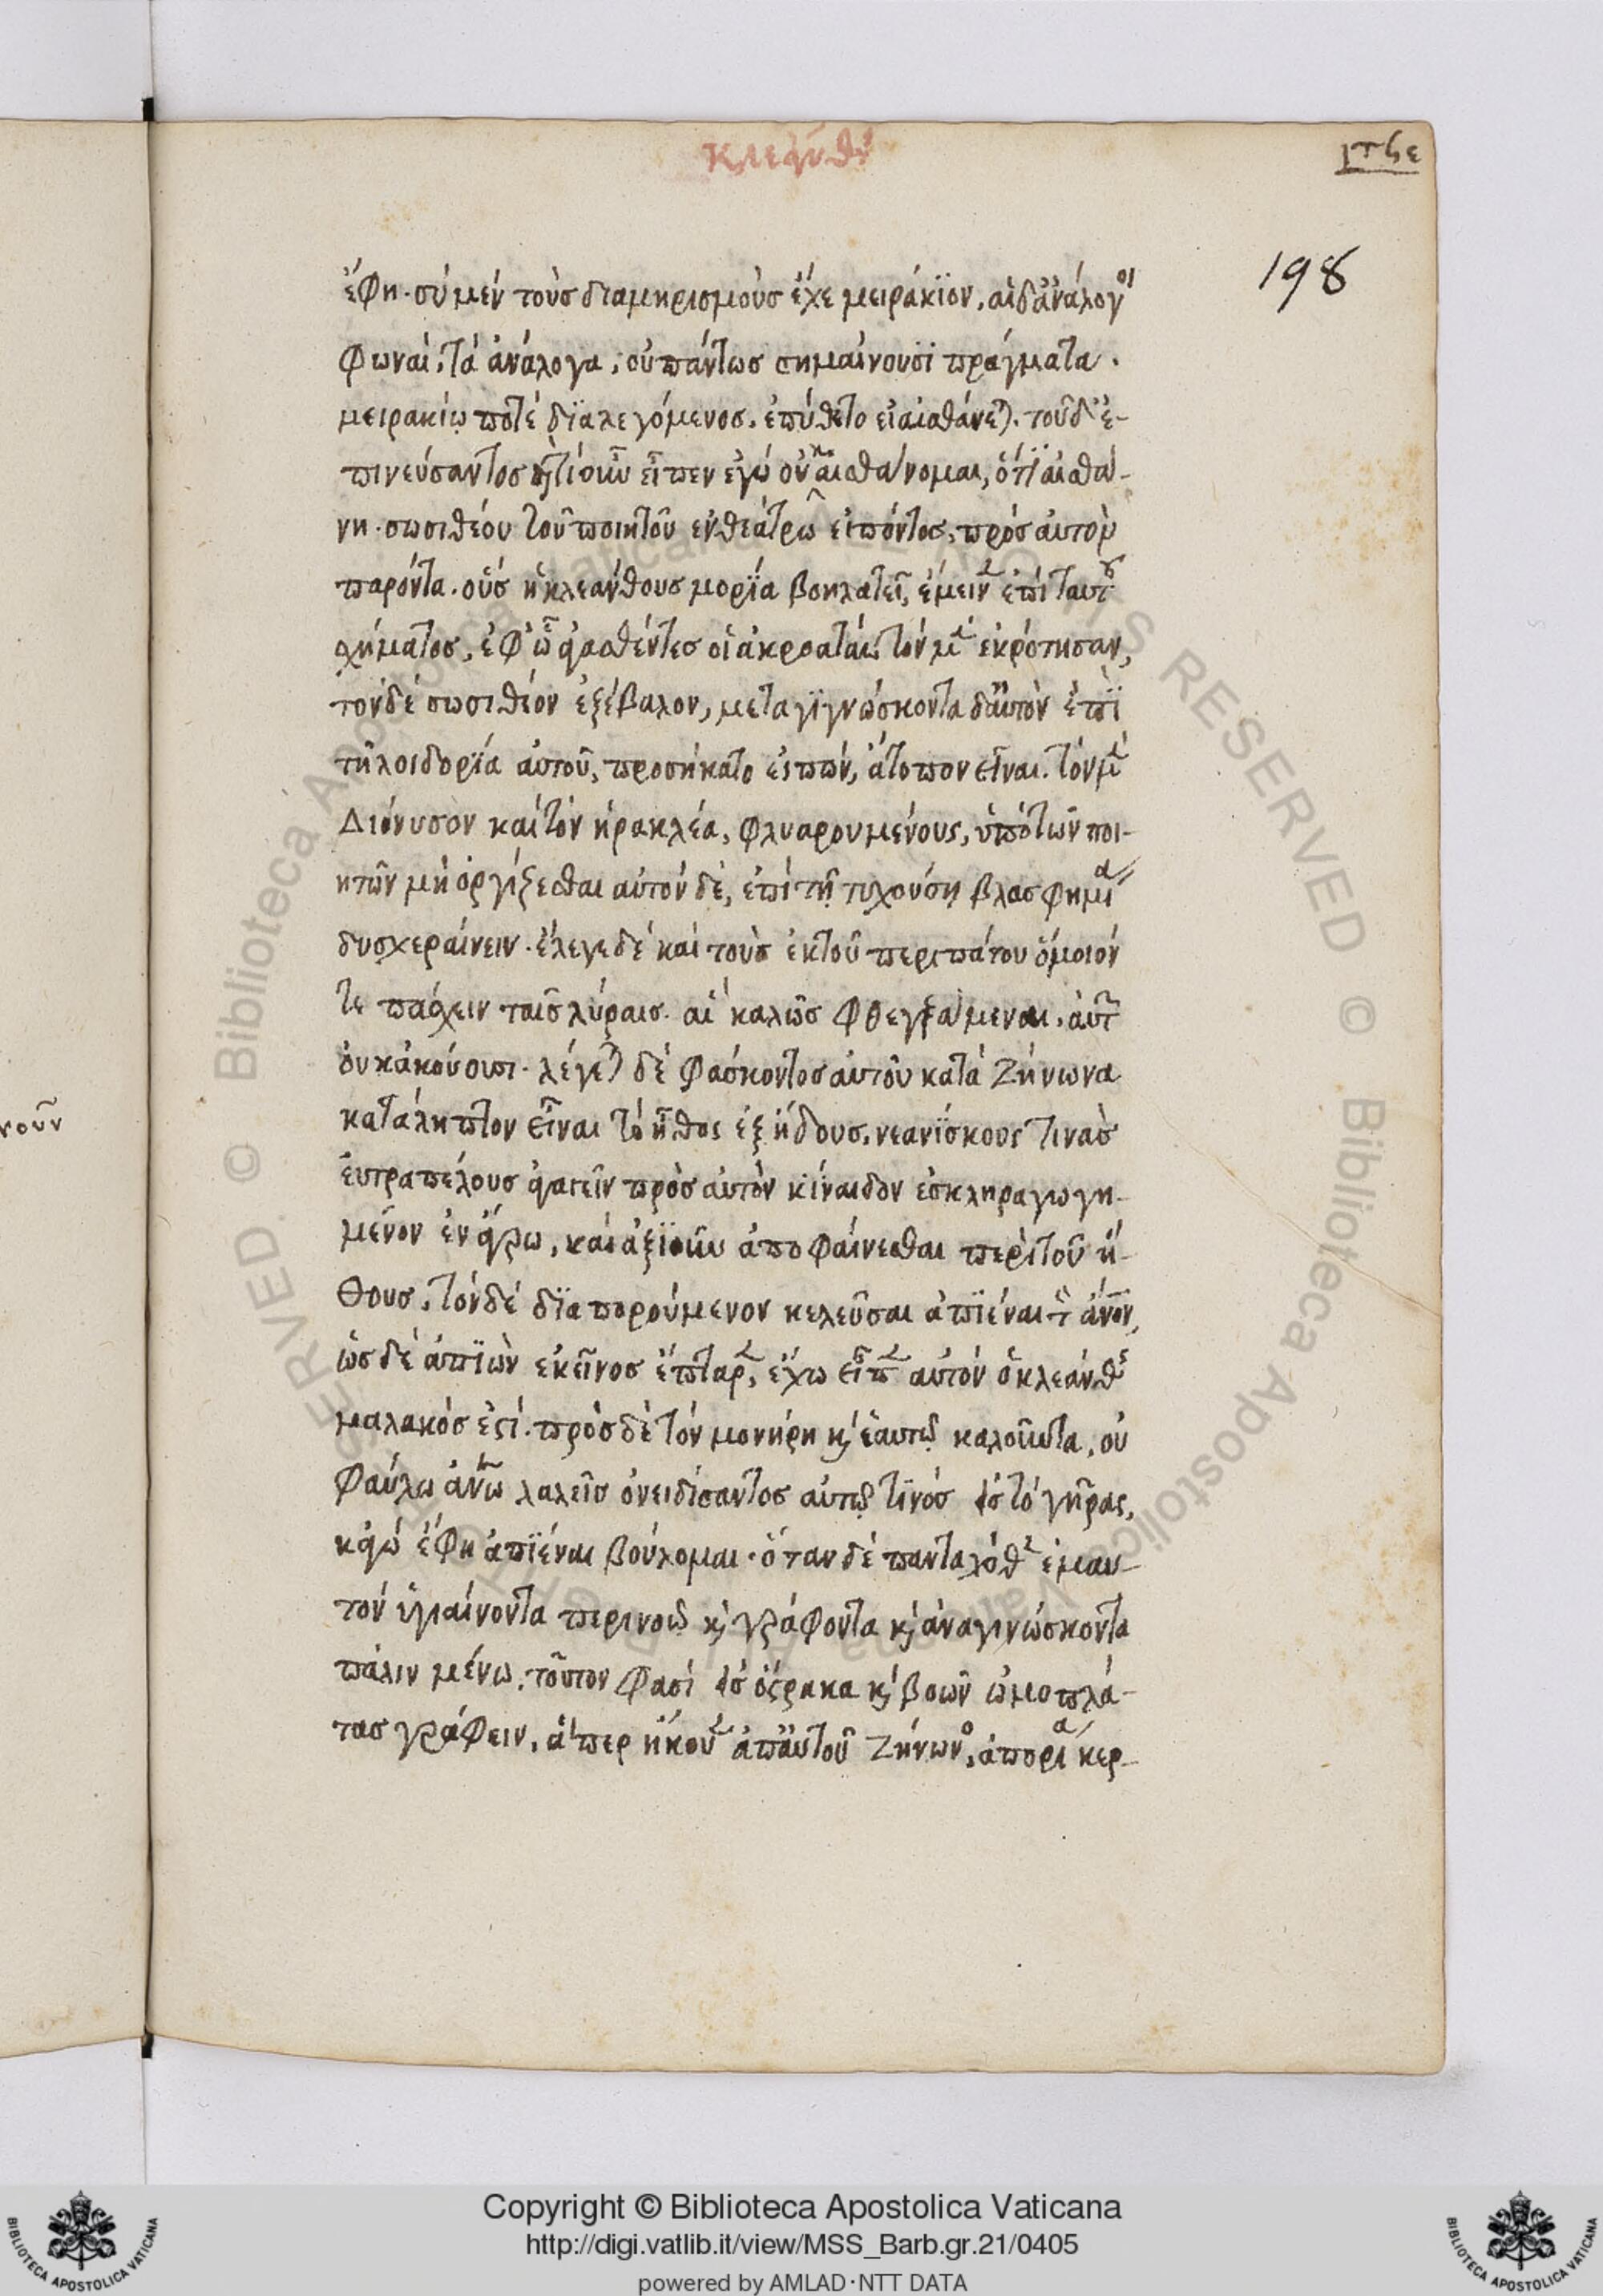 κλεάνθης
ρπϛε
198
ἔφη· σὺ μὲν τοὺς διαμηρισμοὺς ἔχε μειράκϊον, αἱ δ' ἀνάλογοι
φωναὶ, τὰ ἀνάλογα, οὐ πάντως σημαίνουσϊ πράγματα.
μειρακίῳ ποτὲ δϊαλεγόμενος. ἐπύθετο εἰ αἰσθάνεται. τοῦ δ' ἐ-
πινεύσαντος διατί οὖν εἶπεν ἐγὼ οὐκ αἰσθάνομαι, ὅτϊ αἰσθά-
νη. σωσιθέου τοῦ ποιητοῦ ἐν θεάτρω εἰπόντος, πρὸς αὐτὸν
παρόντα. οὓς ἡ κλεάνθους μορΐα βοηλατεῖ, ἔμεινεν ἐπὶ ταυτοῦ
σχήματος, ἐφ' ᾧ ἀγασθέντες οἱ ἀκροαταὶ, τὸν μὲν ἐκρότησαν,
τὸν δὲ σωσιθέον ἐξέβαλον, μεταγϊγνώσκοντα δ' αὐτὸν ἐπῒ
τῆ λοιδορΐα αὐτοῦ, προσήκατο εἰπὼν, ἄτοπον εἶναι. τὸν μὲν
Διόνυσον καὶ τὸν ἡρακλέα, φλυαρουμένους, ὑπὸ τῶν ποι-
ητῶν μὴ ὀργίζεσθαι αὐτὸν δὲ, ἐπὶ τῆ τυχούση βλασφημία
δυσχεραίνειν. ἔλεγε δὲ καὶ τοὺς ἐκ τοῦ περιπάτου ὅμοιόν
τε πάσχειν ταῖς λύραις. αἳ καλῶς φθεγξάμεναι, αὑτῶν
οὐκ ἀκούουσι. λέγεται δὲ φάσκοντος αὐτοῦ κατὰ Ζήνωνα
καταληπτὸν εἶναι τὸ ἦθος ἐξ ἤδους, νεανΐσκους τινὰς
εὐτραπέλους ἀγαγεῖν πρὸς αὐτὸν κίναιδον ἐσκληραγωγη-
μένον ἐν ἀγρῷ, καὶ ἀξϊοῦν ἀποφαίνεσθαι περὶ τοῦ ἤ-
θους. τὸν δὲ δϊαπορούμενον κελεῦσαι ἀπϊέναι τὸν ἄνον,
ὡς δὲ ἀπϊὼν ἐκεῖνος ἔπταρεν, ἔχω εἶπεν αὐτὸν ὁ κλεάνθης
μαλακός ἐστί. πρὸς δὲ τὸν μονήρη κ̀ ἑαυτῷ καλοῦντα, οὐ
φαύλω ἀνῶ λαλεῖς ὀνειδίσαντος αὐτῷ τϊνὸς εἰς τὸ γῆρας,
κἀγὼ ἔφη ἀπϊέναι βούλομαι. ὅταν δὲ πανταχόθεν ἐμαυ-
τὸν ὑγιαίνοντα περινοῶ κ̀ γράφοντα κ̀ ἀναγινώσκοντα
πάλιν μένω. τοῦτον φασὶ εἰς ὄστρακα κ̀ βοῶν ὠμοπλά-
τας γράφειν, ἅπερ ἤκουεν ἀπ' αὐτοῦ Ζήνωνος, ἀπορία κερ-
νοῦν
Copyright © Biblioteca Apostolica Vaticana
http://digi.vatlib.it/view/MSS_Barb.gr.21/0405
powered by AMLAD·NTT DATA
BIBLIOTECA APOSTOLICA VATICANA
BIBLIOTECA APOSTOLICA VATICANA